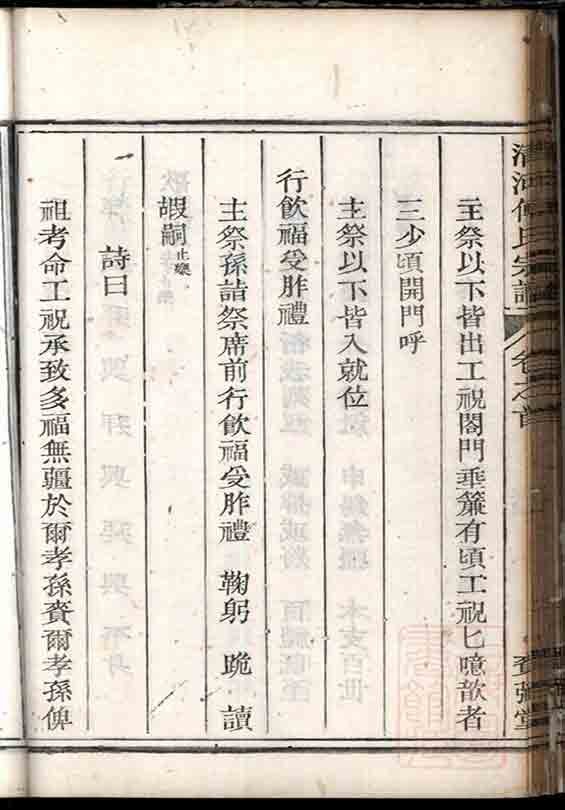 清河傅氏宗譜 卷之首
主祭以下皆出工祝閤門垂簾有頃工祝匕噫歆者
三少頃開門呼
主祭以下皆入就位
行飲福受胙禮
主祭孫詣祭席前行飲福受胙禮 鞠躬 跪 讀
嘏嗣止樂
詩曰
祖考命工祝承致多福無疆於爾孝孫賚爾孝孫俾